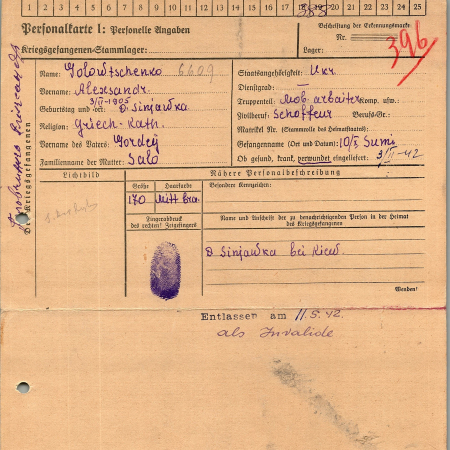 1 2 3 4 5 6 7 8 9 10 11 12 13 14 15 16 17 18 19 20 21 22 23 24 25
Personalkarte I: Personelle Angaben
Kriegsgefangenen-Stammlager:
Beschriftung der Erkennungsmarke
Nr.
396
Lager:
Des Kriegsgefangenen
Name: Golowtschenko 6609
Vorname: Alexsandr
Geburtstag und -ort: 3/II-1905 D. Sinjawka
Religion: Griech-Kath.
Vorname des Vaters: Gordej
Familienname der Mutter: Salo
Staatsangehörigkeit: Ukr.
Dienstgrad:
Truppenteil: Mob arbeiter Komp. usw.
Zivilberuf: Schoffeur Berufs-Gr.:
Matrikel Nr. (Stammrolle des Heimatstaates):
Gefangennahme (Ort und Datum): 10/X Sumi
Ob gesund, krank, verwundet eingeliefert: 3/II-42
Lichtbild
Nähere Personalbeschreibung
Größe
Haarfarbe
Besondere Kennzeichen:
170
Mitt bra.
Fingerabdruck
des rechten! Zeigefingers
Name und Anschrift der zu benachrichtigenden Person in der Heimat
des Kriegsgefangenen
D Sinjawka bei Kiew.
Wenden!
Entlassen am 11.5.42.
als Invalide